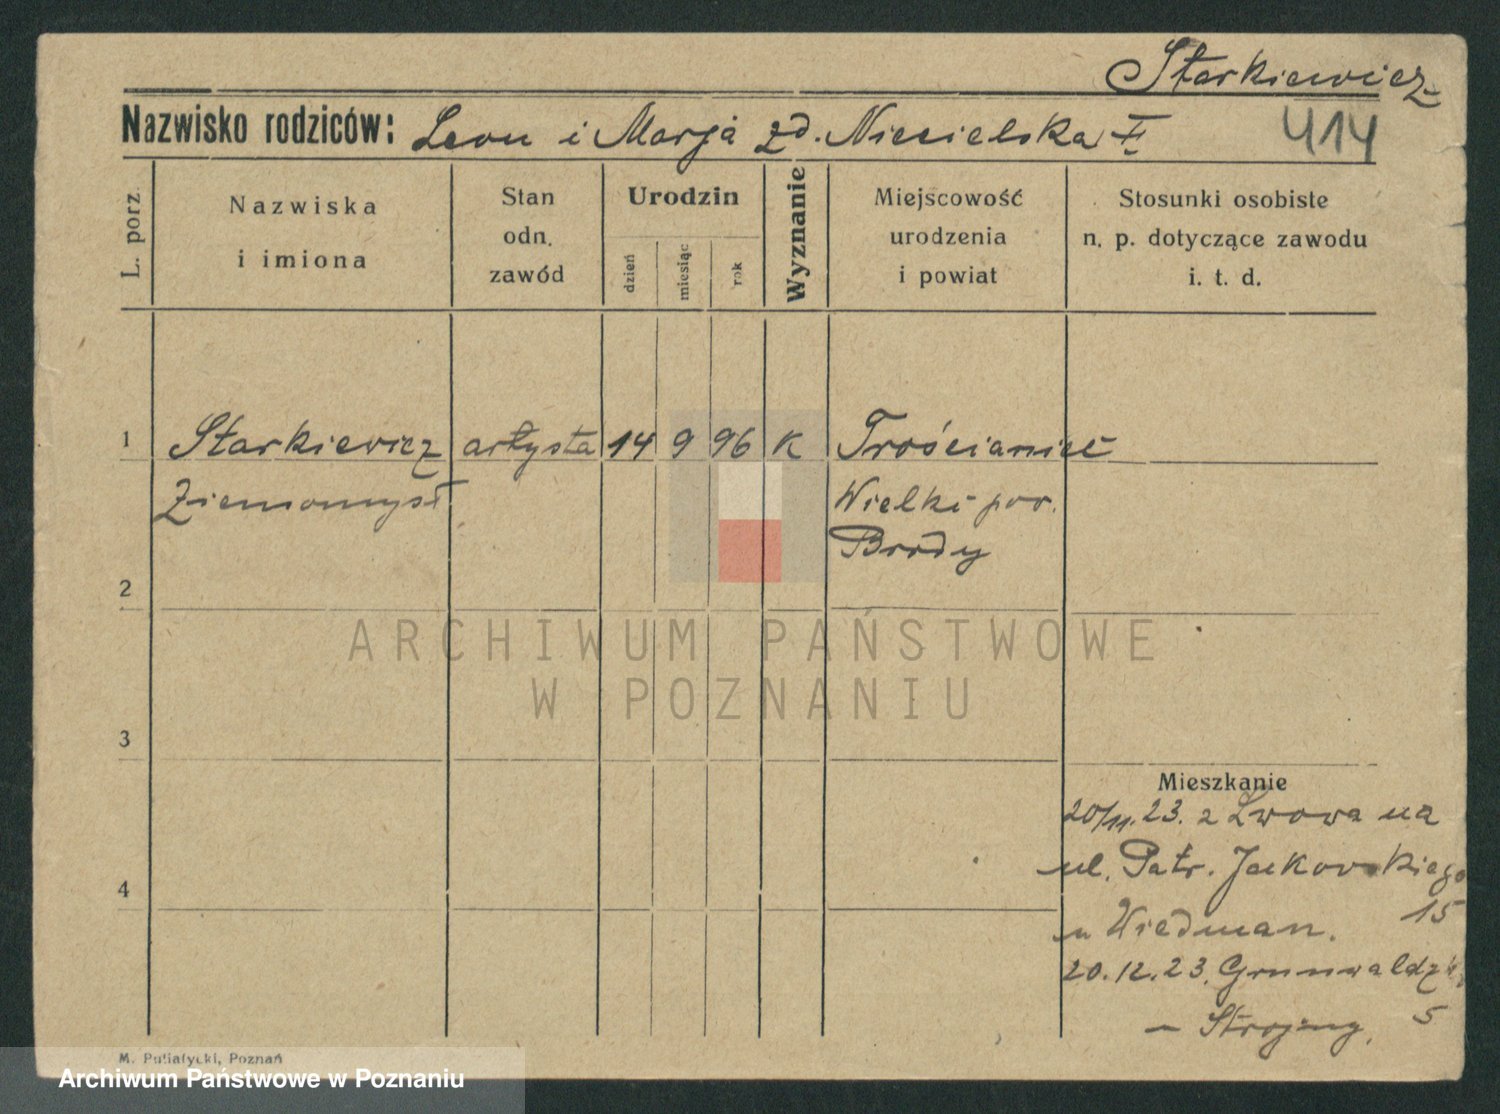 Starkiewicz
Nazwisko rodziców: Leon i Marja zd. Niecielska
414
L. porz.
Nazwiska
i imiona
Stan
odn.
zawód
Urodzin
dzień
miesiąc
rok
Wyznanie
Miejscowość
urodzenia
i powiat
Stosunki osobiste
n. p. dotyczące zawodu
i. t. d.
1 Starkiewicz artysta 14 9 96 K Trościaniec
Ziemomysł Wielki pow.
Brody
2
3
4
ARCHIWUM PAŃSTWOWE
W POZNANIU
Mieszkanie
20/11.23. z Lwowa na
ul. Patr. Jackowskiego
15
u Wiedman.
20.12.23. Grunwaldzk
5
Strojny.
M. Putiatycki, Poznań
Archiwum Państwowe w Poznaniu